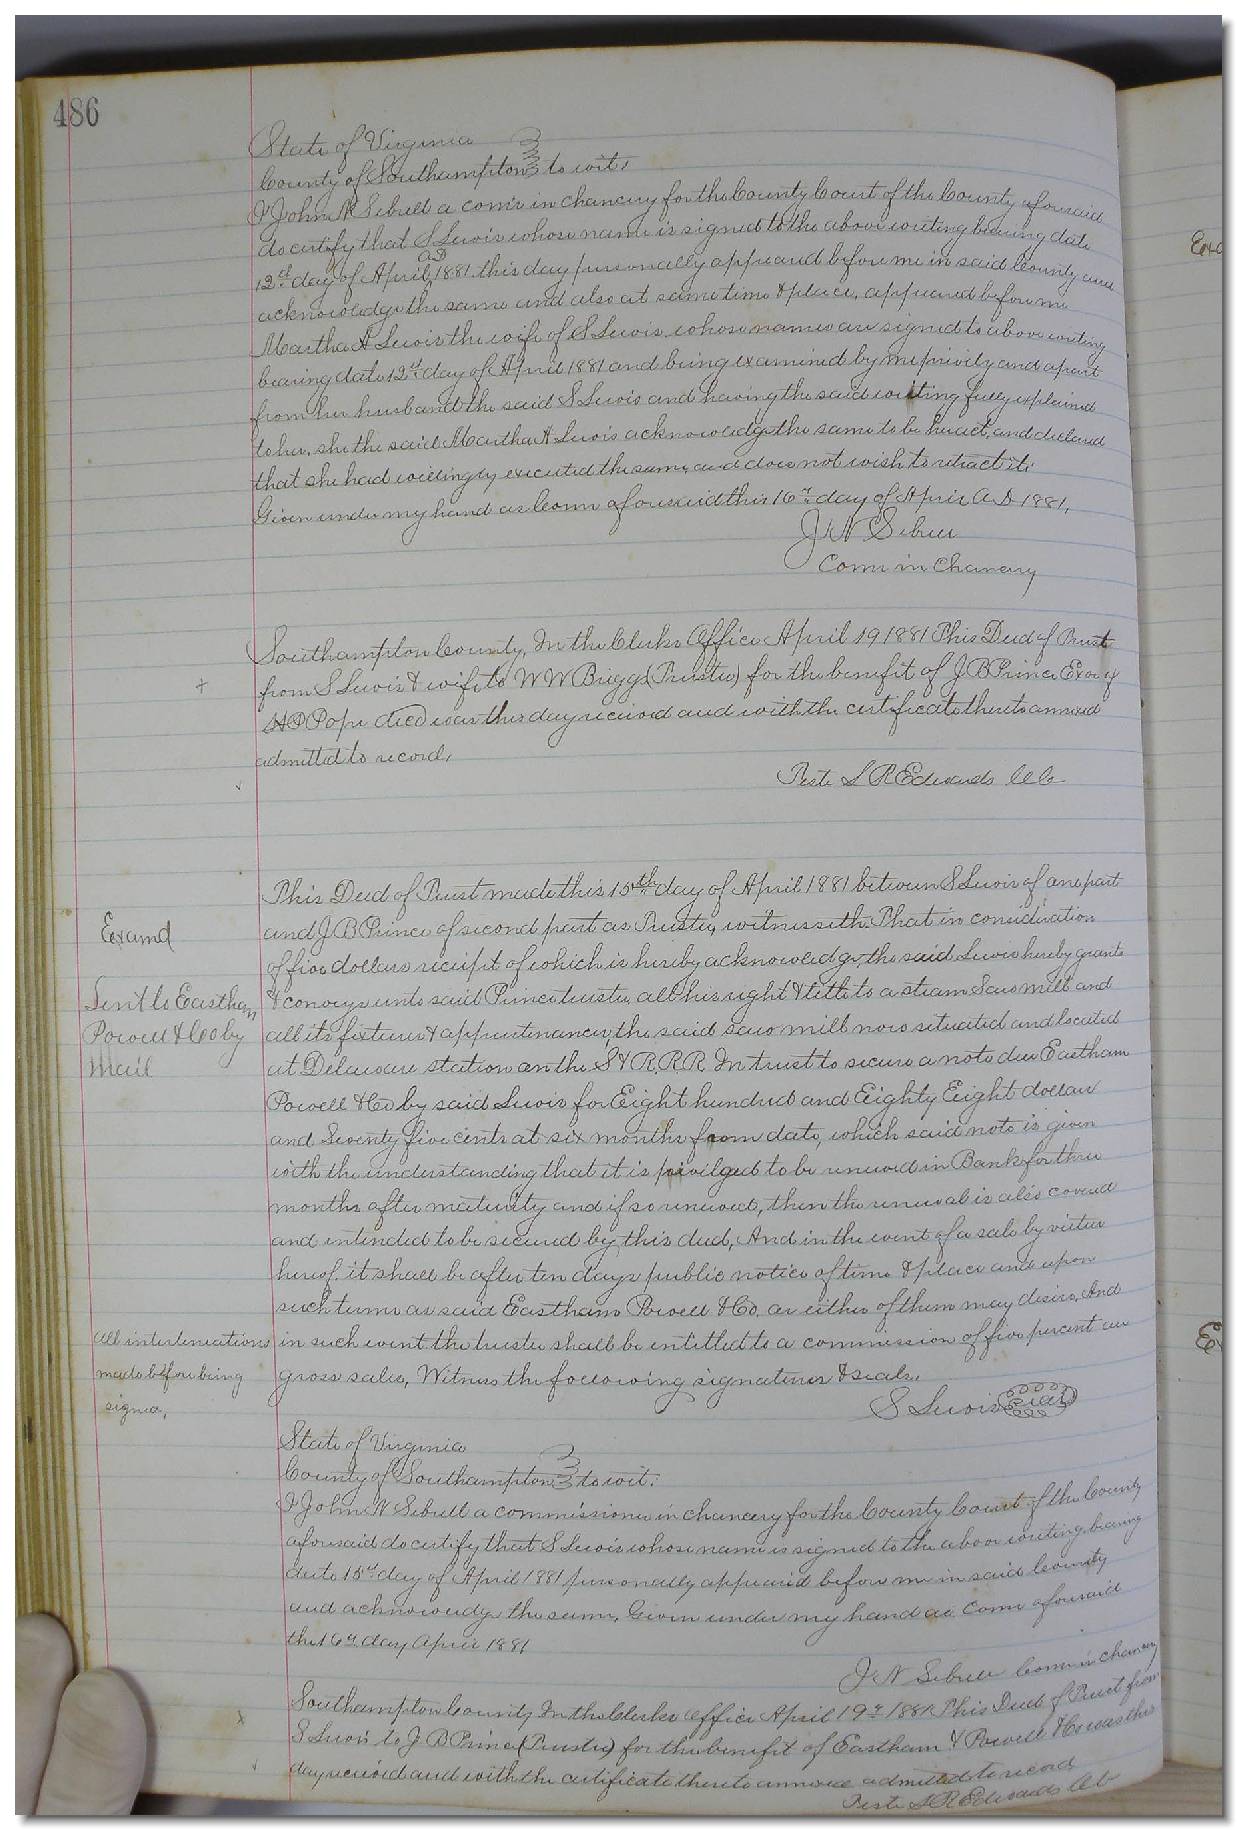 486
State of Virginia
County of Southampton to wit,
I John N Sebrell a comr in chancery for the County Court of the County aforesaid
do certify that S Lewis whose name is signed to the above writing bearing date
12th day of April AD 1881 this day personally appeared before me in said County and
acknowledge the same and also at same time & place, appeared before me
Martha A Lewis the wife of S Lewis whose names are signed to above writing
bearing date 12th day of April 1881 and being examined by me privily and apart
from her husband the said S Lewis and having the said writing fully explained
to her, she the said Martha A Lewis acknowledge the same to be her act, and declared
that she had willingly executed the same, and does not wish to retract it.
Given under my hand as Comr aforesaid this 16th day of April A.D. 1881,
J N Sebrell
Comr in Chancery
Southampton County, In the Clerks Office April 19 1881 This Deed of Trust
from S Lewis & wife to W W Briggs (Trustee) for the benefit of J B Prince Exor of
Pope died was this day received and with the certificate thereto annexed
admitted to record,
Teste L R Edwards CC
This Deed of Trust made this 15th day of April 1881 between S Lewis of one part
and J B Prince of second part as Trustee, witnesseth That in consideration
Examd
of five dollars receipt of which is hereby acknowledge, the said Lewis hereby grants
Sent to Eastham
& conveys unto said Prince trustee, all his right & title to a steam Saw mill and
Powell & Co by
all its fixtures & appurtenances, the said saw mill now situated and located
Mail
at Delaware station on the S & R. R.R. In trust to secure a note due Eastham
Powell & Co by said Lewis for Eight hundred and Eighty Eight dollars
and Seventy five cents at six months from date, which said note is given
with the understanding that it is privilged to be renewed in Bank for three
months after maturity and if so renewed, then the renewal is also covered
and intended to be secured by this deed, And in the event of a sale by virtue
hereof it shall be after ten days public notice of time & place and upon
such terms as said Eastham Powell & Co. or either of them may desire, And
all interlineations
in such event the trustee shall be entitled to a commission of five percent on
made before being
gross sales, Witness the following signatures & seals.
signed,
S Lewis Seal
State of Virginia
County of Southampton to wit:
I John N Sebrell a commissioner in chancery for the County Court of the County
aforesaid do certify that S Lewis whose name is signed to the above writing bearing
date 15th day of April 1881 personally appeared before me in said County
and acknowledge the same, Given under my hand as Comr aforesaid
the 16th day April 1881
J N Sebrell Comr in chancery
Southampton County In the Clerks Office April 19th 1881. This Deed of Trust from
S Lewis to J B Prince (Trustee) for the benefit of Eastham & Powell & Co was this
day received and with the certificate thereto annexed admitted to record
Teste L R Edwards CC